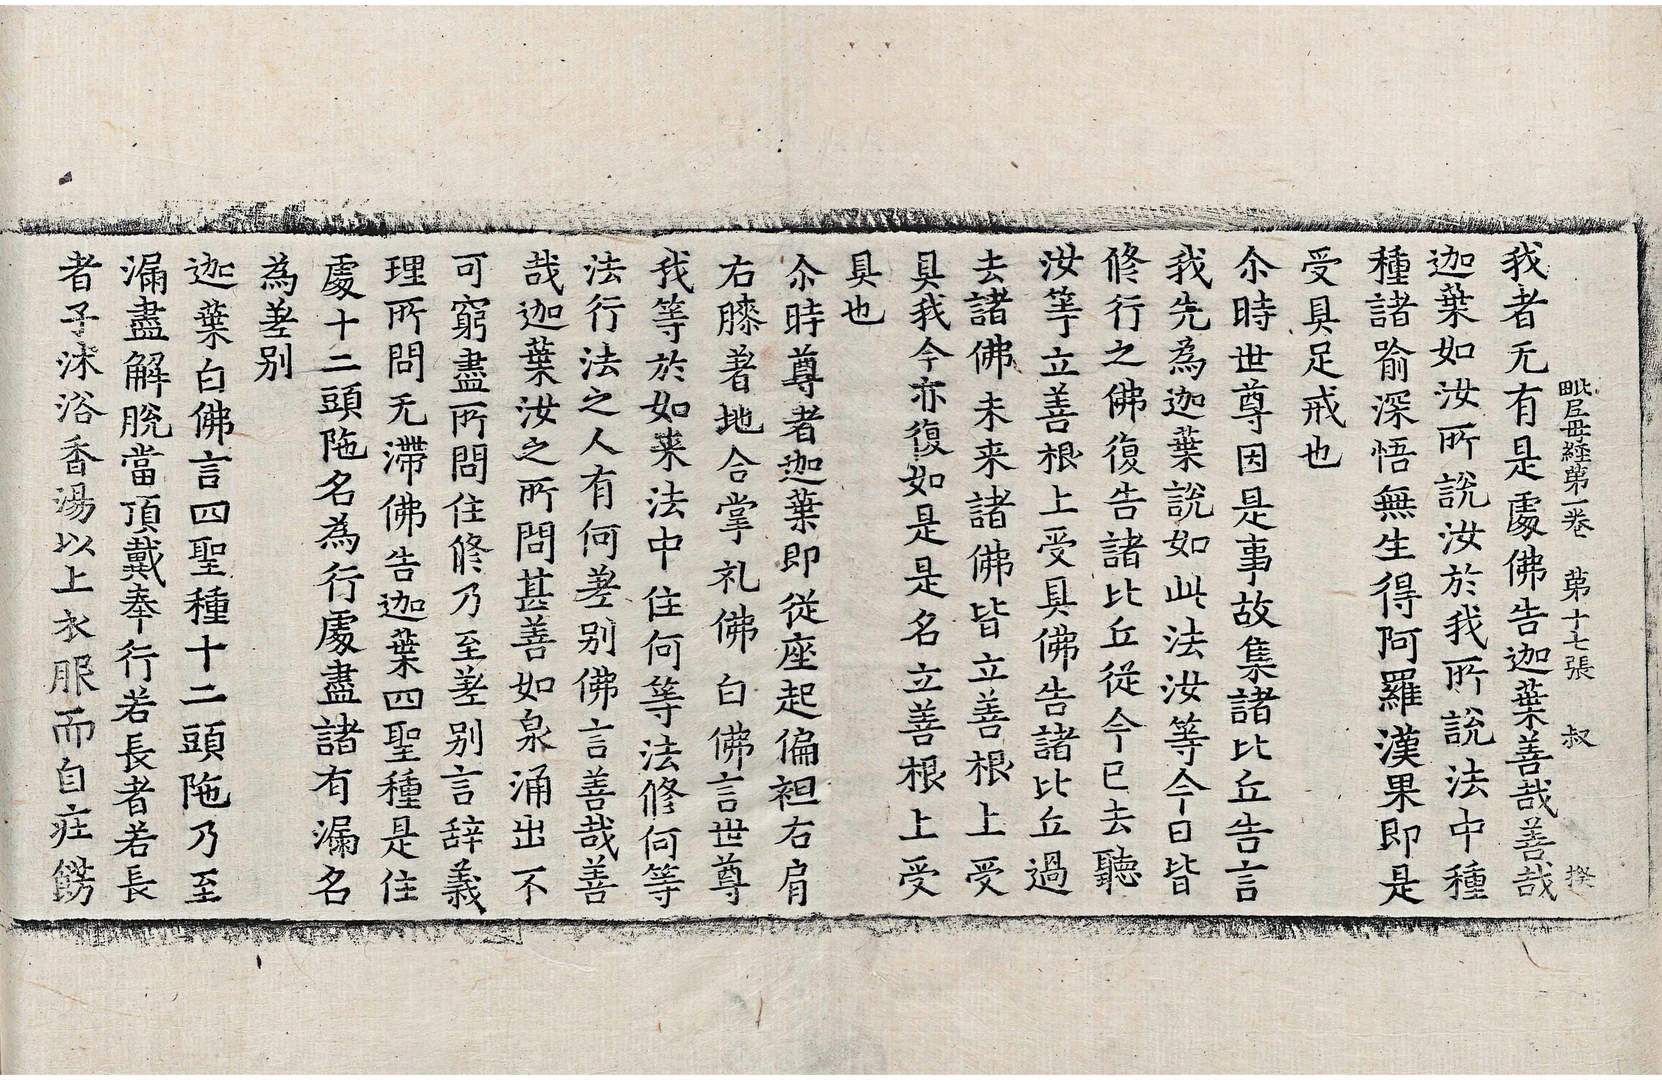 毗尼母経苐一卷 苐十七張 叔 揆
我者无有是處佛告迦葉善哉善哉
迦葉如汝所說汝於我所說法中種
種諸喻深悟無生得阿羅漢果即是
受具足戒也
尒時世尊因是事故集諸比丘告言
我先為迦葉說如此法汝等今日皆
修行之佛復告諸比丘從今已去聽
汝等立善根上受具佛告諸比丘過
去諸佛未来諸佛皆立善根上受
具我今亦復如是是名立善根上受
具也
尒時尊者迦葉即從座起偏袒右肩
右膝著地合掌礼佛白佛言世尊
我等於如来法中住何等法修何等
法行法之人有何差别佛言善哉善
哉迦葉汝之所問甚善如泉涌出不
可窮盡所問住修乃至差别言辞義
理所問无滯佛告迦葉四聖種是住
處十二頭陁名為行處盡諸有漏名
為差别
迦葉白佛言四聖種十二頭陁乃至
漏盡解脫當頂戴奉行若長者若長
者子沐浴香湯以上衣服而自莊餝